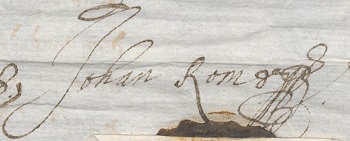 Johan Rom